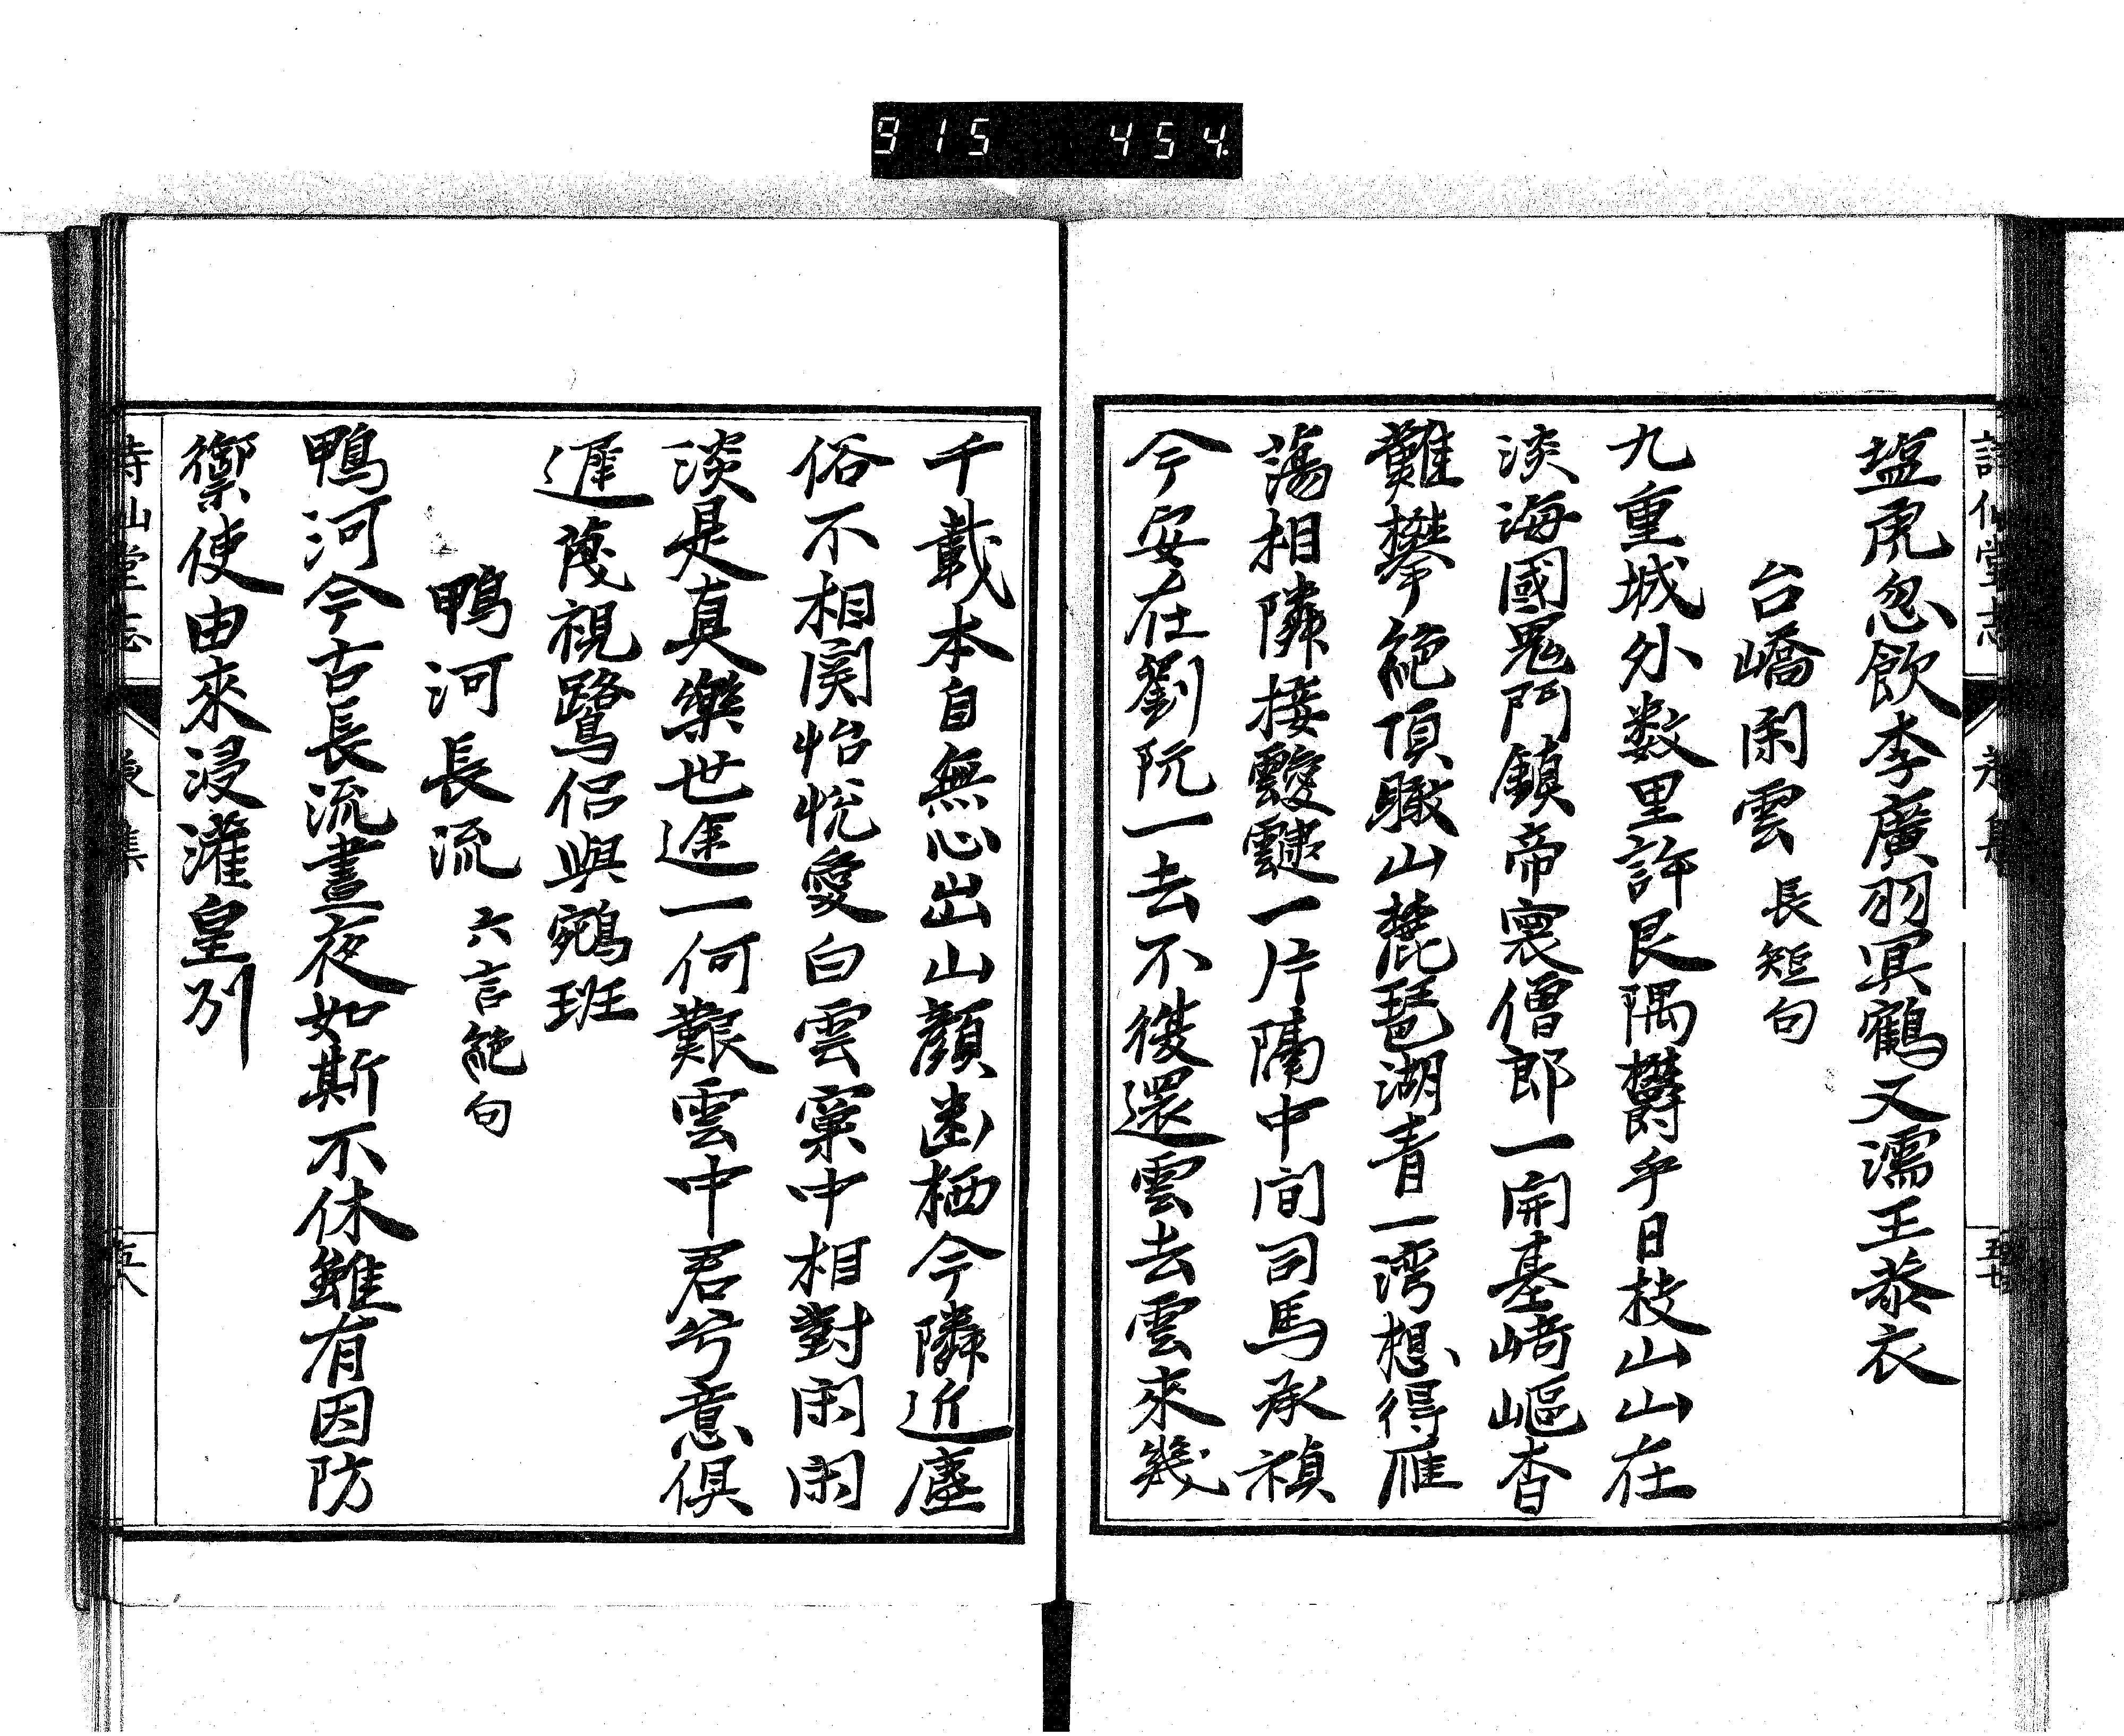 915 454
塩虎忽飲李廣羽冥鶴又濡王恭衣
台嶠閑雲 長短句
九重城外数里許艮隅欝乎日枝山山在
淡海國鬼門鎮帝裏僧郎一開基﨑嶇杳
難攀絶頂瞰山麓琶湖青一湾想得雁
蕩相隣接靉靆一片隔中間司馬承禎
今安在劉阮一去不復還雲去雲来幾
千載本自無心出山顔幽栖今隣近塵
俗不相関怡悦愛白雲窠中相對閑閑
淡是真樂世途一何艱雲中君兮意倶
遅蔑視鷺侶與鵷班
鴨河長流 六言絶句
鴨河今古長流晝夜如斯不休雖有因防
禦使由來浸灌皇州